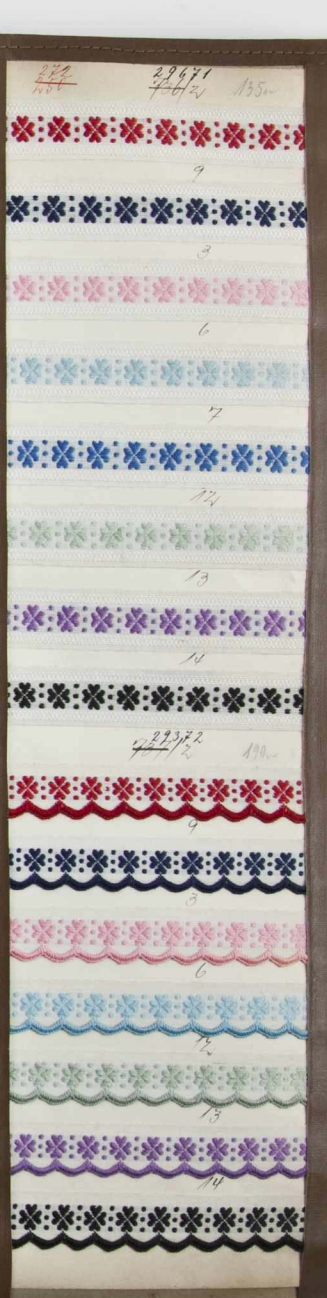 272 29671 135
9
3
6
7
12
13
14
29372 190
9
3
6
12
13
14